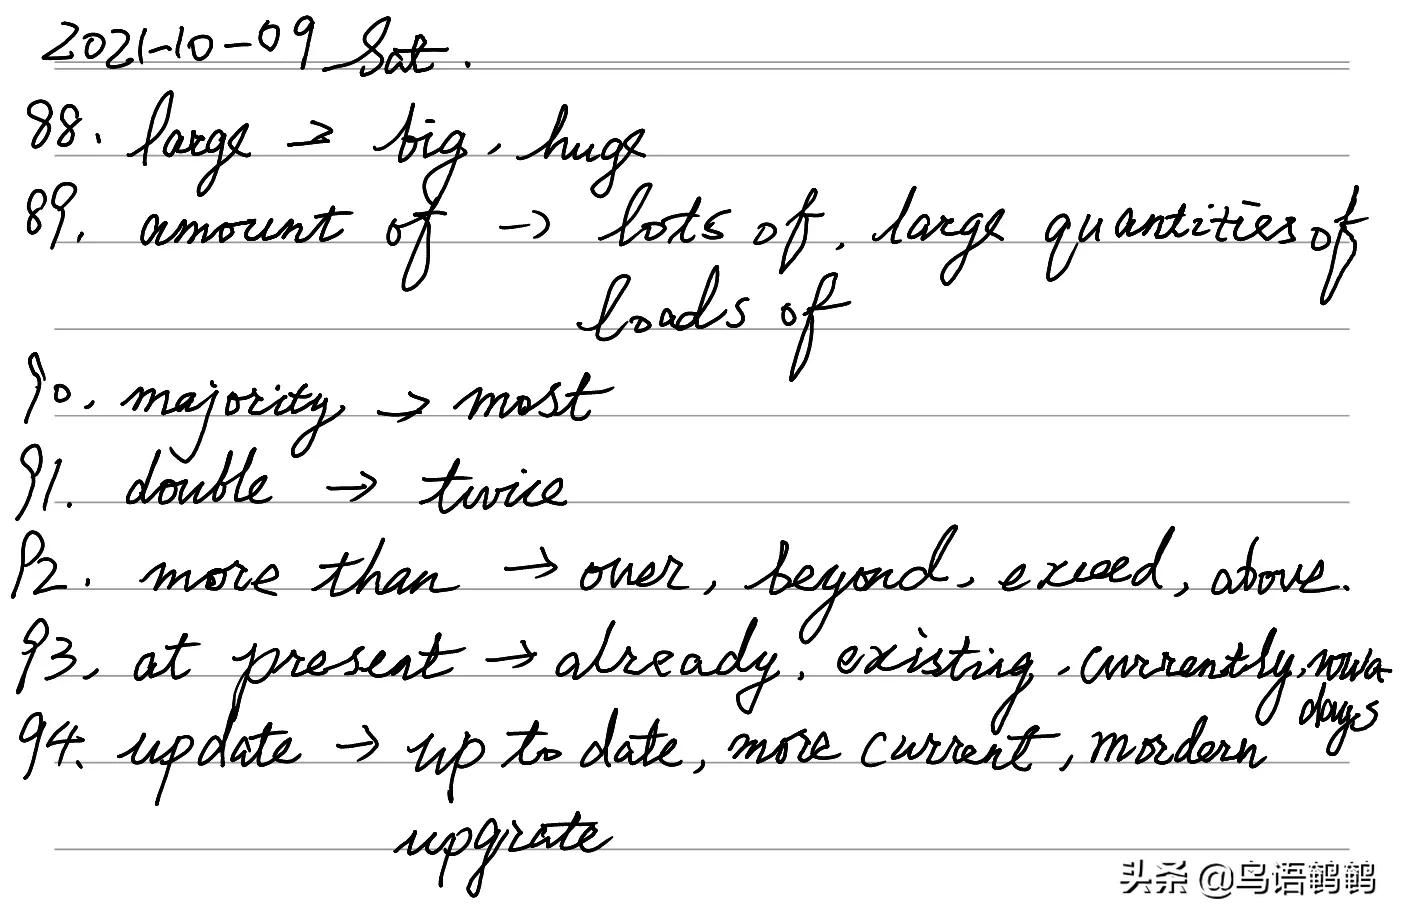 2021-10-09 Sat.
88. large → big, huge
89. amount of → lots of, large quantities of
loads of
90. majority → most
91. double → twice
92. more than → over, beyond, exceed, above.
93. at present → already, existing, currently, nowa
days
94. update → up to date, more current, mordern
upgrate
头条 @鸟语鹤鹤